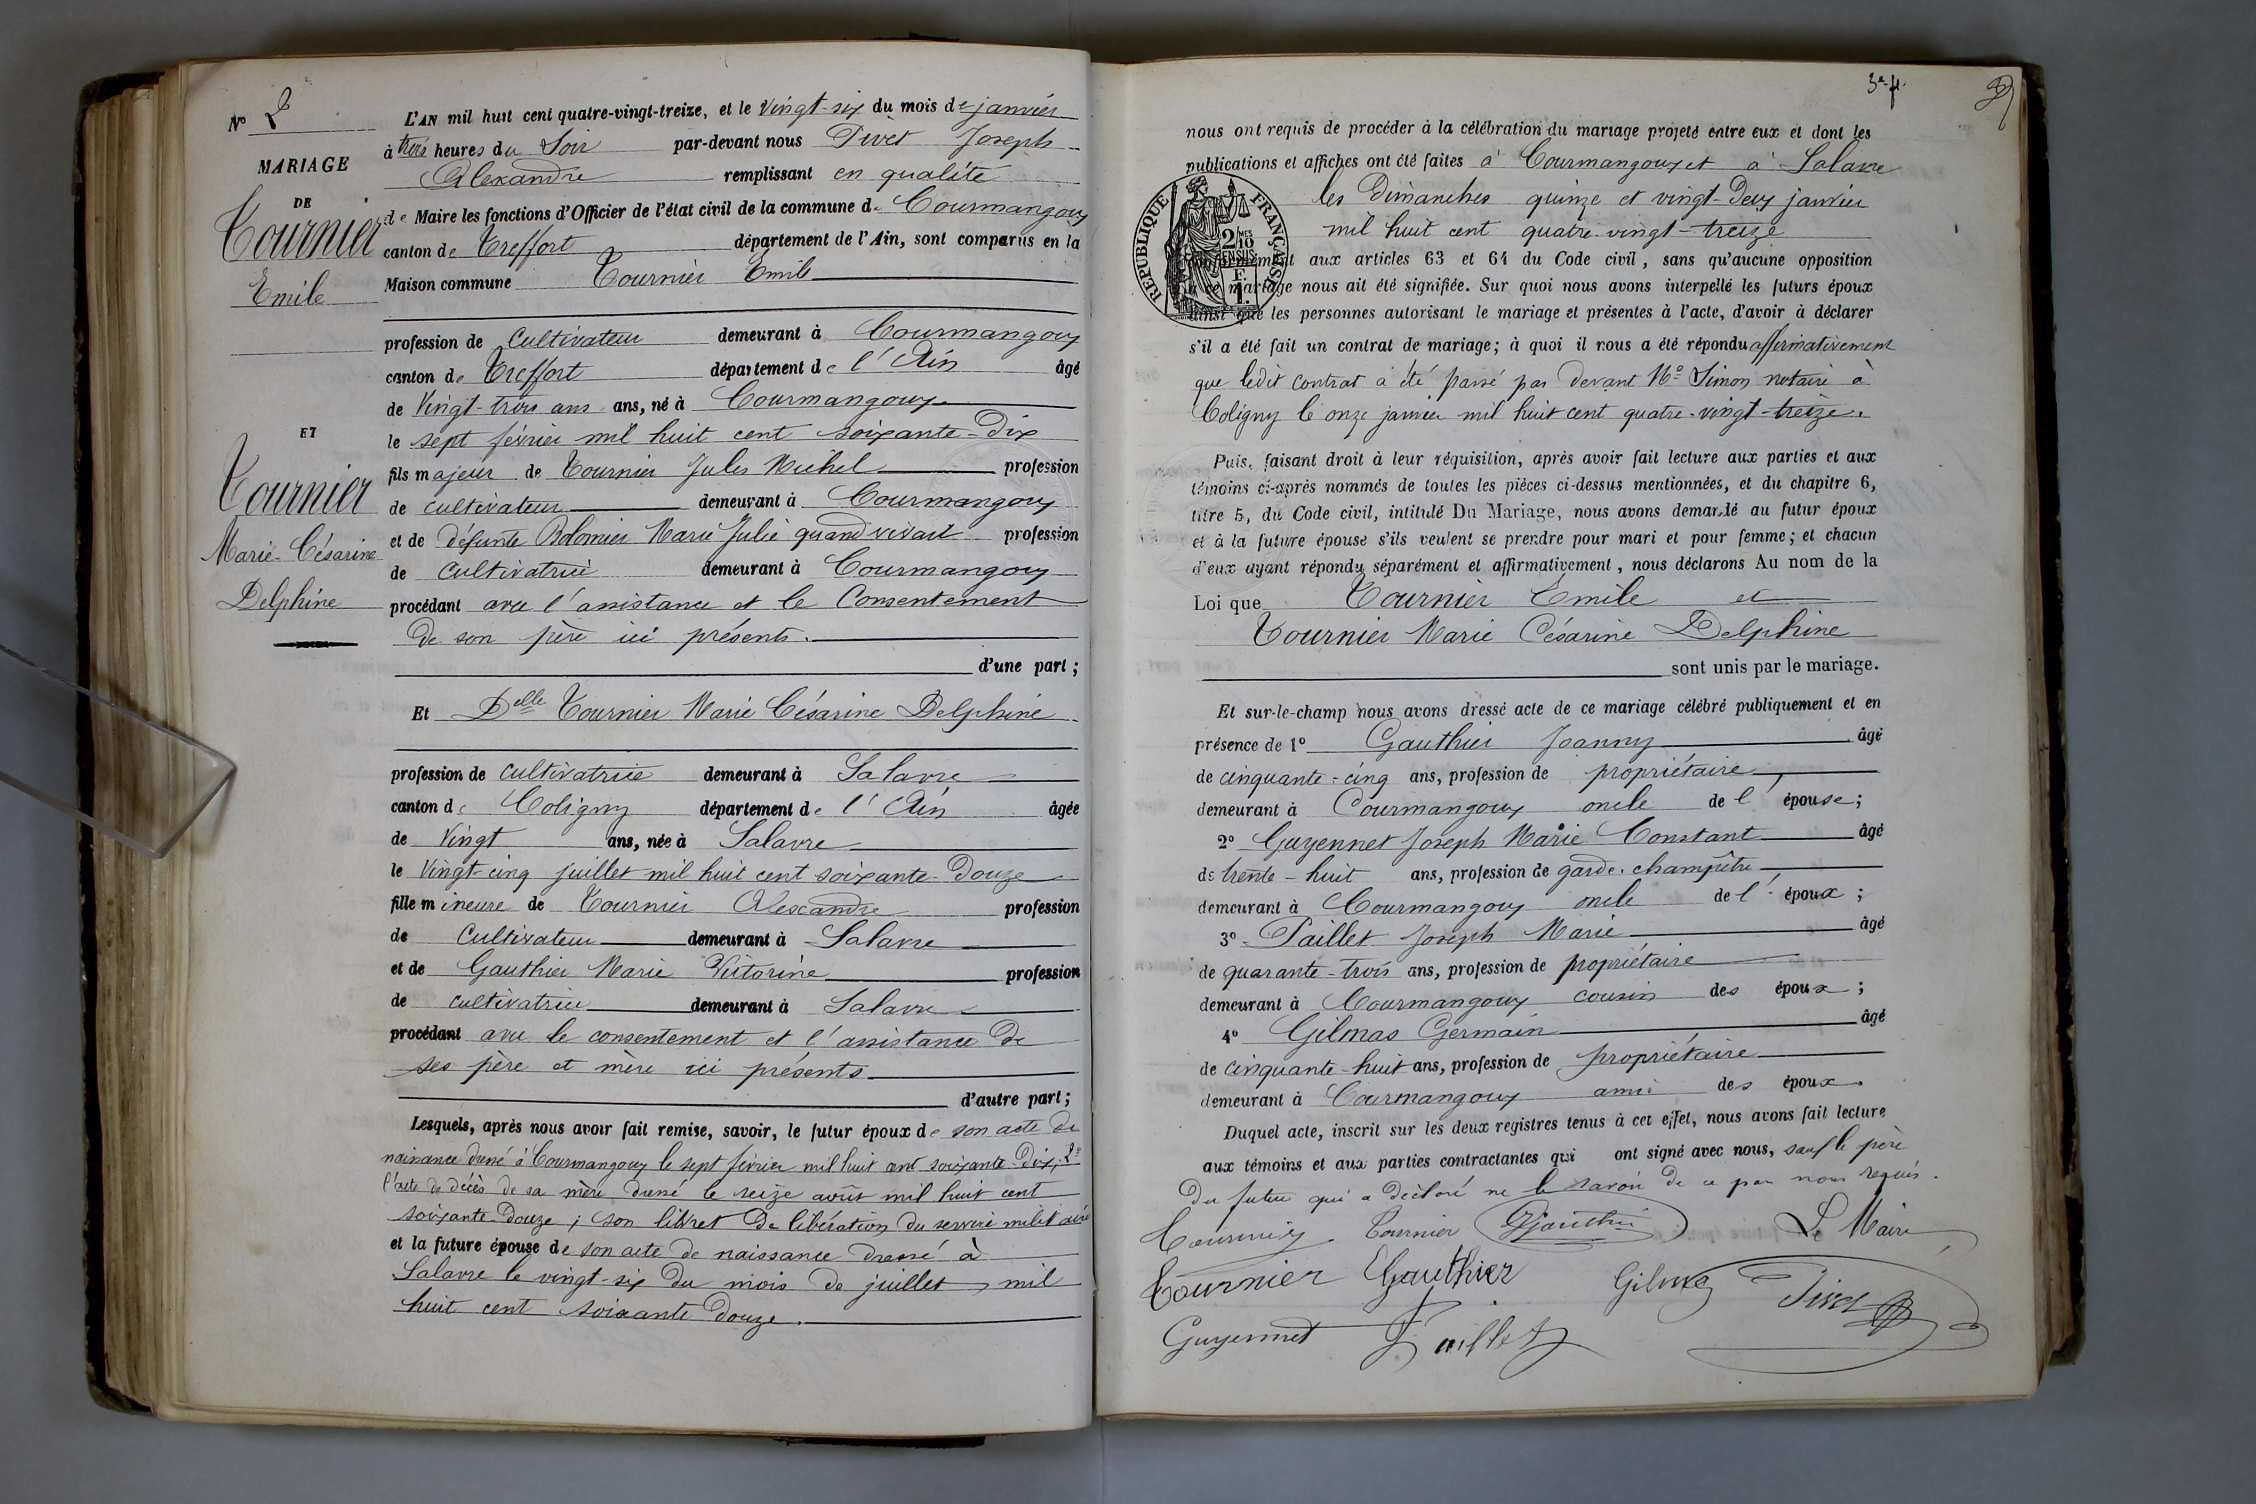 N° 2
MARIAGE
DE
Tournier
Emile
ET
Tournier
Marie-Césarine
Delphine
L'AN mil huit cent quatre-vingt-treize, et le Vingt-six du mois de janvier
à trois heures du Soir par-devant nous Pivet Joseph
Alexandre remplissant en qualité
de Maire les fonctions d'Officier de l'état civil de la commune de Courmangoux
canton de Treffort département de l'Ain, sont comparus en la
Maison commune Tournier Emile
profession de Cultivateur demeurant à Courmangoux
canton de Treffort département de l'Ain âgé
de Vingt-trois ans ans, né à Courmangoux
le sept février mil huit cent soixante-Dix
fils majeur de Tournier Jules Michel profession
de cultivateur demeurant à Courmangoux
et de défunte Bolomier Marie Julie quand vivait profession
de Cultivatrice demeurant à Courmangoux
procédant avec l'assistance et le Consentement
de son père ici présents.
d'une part ;
Et Delle Tournier Marie Césarine Delphine
profession de cultivatrice demeurant à Salavre
canton de Coligny département de l'Ain âgée
de Vingt ans, née à Salavre
le Vingt-cinq juillet mil huit cent soixante-Douze
fille mineure de Tournier Alexandre profession
de Cultivateur demeurant à Salavre
et de Gauthier Marie Victorine profession
de cultivatrice demeurant à Salavre
procédant avec le consentement et l'assistance de
ses père et mère ici présents
d'autre part ;
Lesquels, après nous avoir fait remise, savoir, le futur époux de son acte de
naissance dressé à Courmangoux le sept février mil huit cent soixante-Dix, 2°
l'acte de décès de sa mère dressé le seize août mil huit cent
soixante-Douze ; son livret de libération du service militaire
et la future épouse de son acte de naissance dressé à
Salavre le vingt-six du mois de juillet mil
huit cent soixante Douze.
nous ont requis de procéder à la célébration du mariage projeté entre eux et dont les
publications et affiches ont été faites à Courmangoux et à Salavre
les Dimanches quinze et vingt-Deux janvier
mil huit cent quatre-vingt-treize
RÉPUBLIQUE FRANÇAISE
2/10 MES
EN SUS
F.
1.
conformément aux articles 63 et 64 du Code civil, sans qu'aucune opposition
à ce mariage nous ait été signifiée. Sur quoi nous avons interpellé les futurs époux
ainsi que les personnes autorisant le mariage et présentes à l'acte, d'avoir à déclarer
s'il a été fait un contrat de mariage; à quoi il nous a été répondu affirmativement
que ledit contrat a été passé par devant Me Simon notaire à
Coligny le onze janvier mil huit cent quatre-vingt-treize.
Puis, faisant droit à leur réquisition, après avoir fait lecture aux parties et aux
témoins ci-après nommés de toutes les pièces ci-dessus mentionnées, et du chapitre 6,
titre 5, du Code civil, intitulé Du Mariage, nous avons demandé au futur époux
et à la future épouse s'ils veulent se prendre pour mari et pour femme ; et chacun
d'eux ayant répondu séparément et affirmativement, nous déclarons Au nom de la
Loi que Tournier Emile et
Tournier Marie Césarine Delphine
sont unis par le mariage.
Et sur-le-champ nous avons dressé acte de ce mariage célébré publiquement et en
présence de 1° Gauthier Joanny âgé
de cinquante-cinq ans, profession de propriétaire
demeurant à Courmangoux oncle de l'épouse ;
2° Guyennet Joseph Marie Constant âgé
de trente-huit ans, profession de garde-champêtre
demeurant à Courmangoux oncle de l'époux ;
3° Paillet Joseph Marie âgé
de quarante-trois ans, profession de propriétaire
demeurant à Courmangoux cousin des époux ;
4° Gilmas Germain âgé
de cinquante-huit ans, profession de propriétaire
demeurant à Courmangoux ami des époux.
Duquel acte, inscrit sur les deux registres tenus à cet effet, nous avons fait lecture
aux témoins et aux parties contractantes qui ont signé avec nous, sauf le père
du futur qui a déclaré ne le savoir de ce par nous requis.
Tournier Tournier Gauthier Le Maire
Tournier Gauthier Gilmas Pivet
Guyennet Paillet